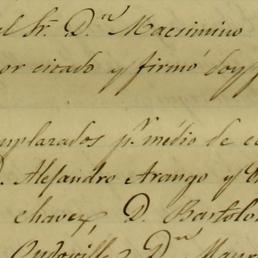 el Sr. D.n Macsimino
or citado y firmó doy
mplazados p.r medio de
D. Alejandro Arango y
Chavez, D. Bartolo
D.n